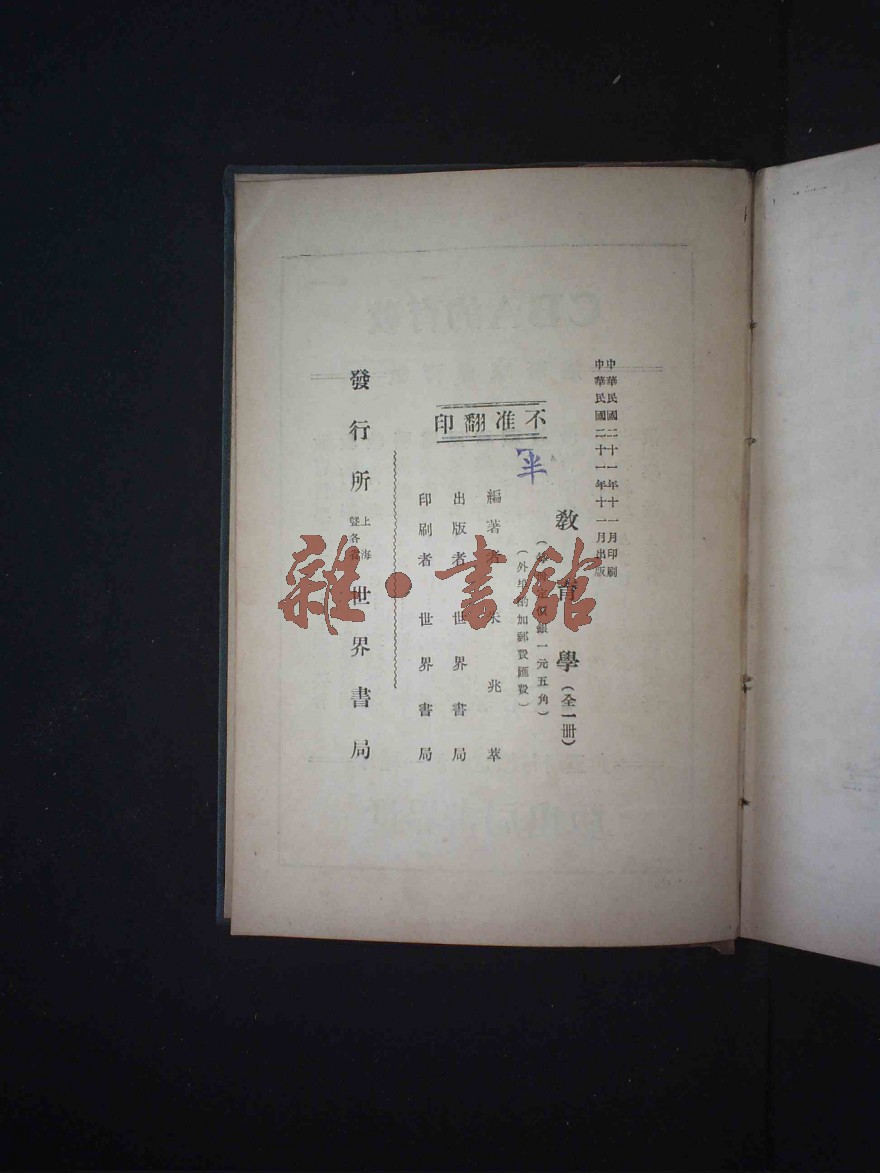 中華民國二十一年十一月印刷
中華民國二十一年十一月出版
教育學(全一冊)
定價銀一元五角)
(外埠酌加郵費匯費)
不准翻印
半
編著者 朱兆萃
出版者 世界書局
印刷者 世界書局
發行所 上海暨各省 世界書局
雜·書館